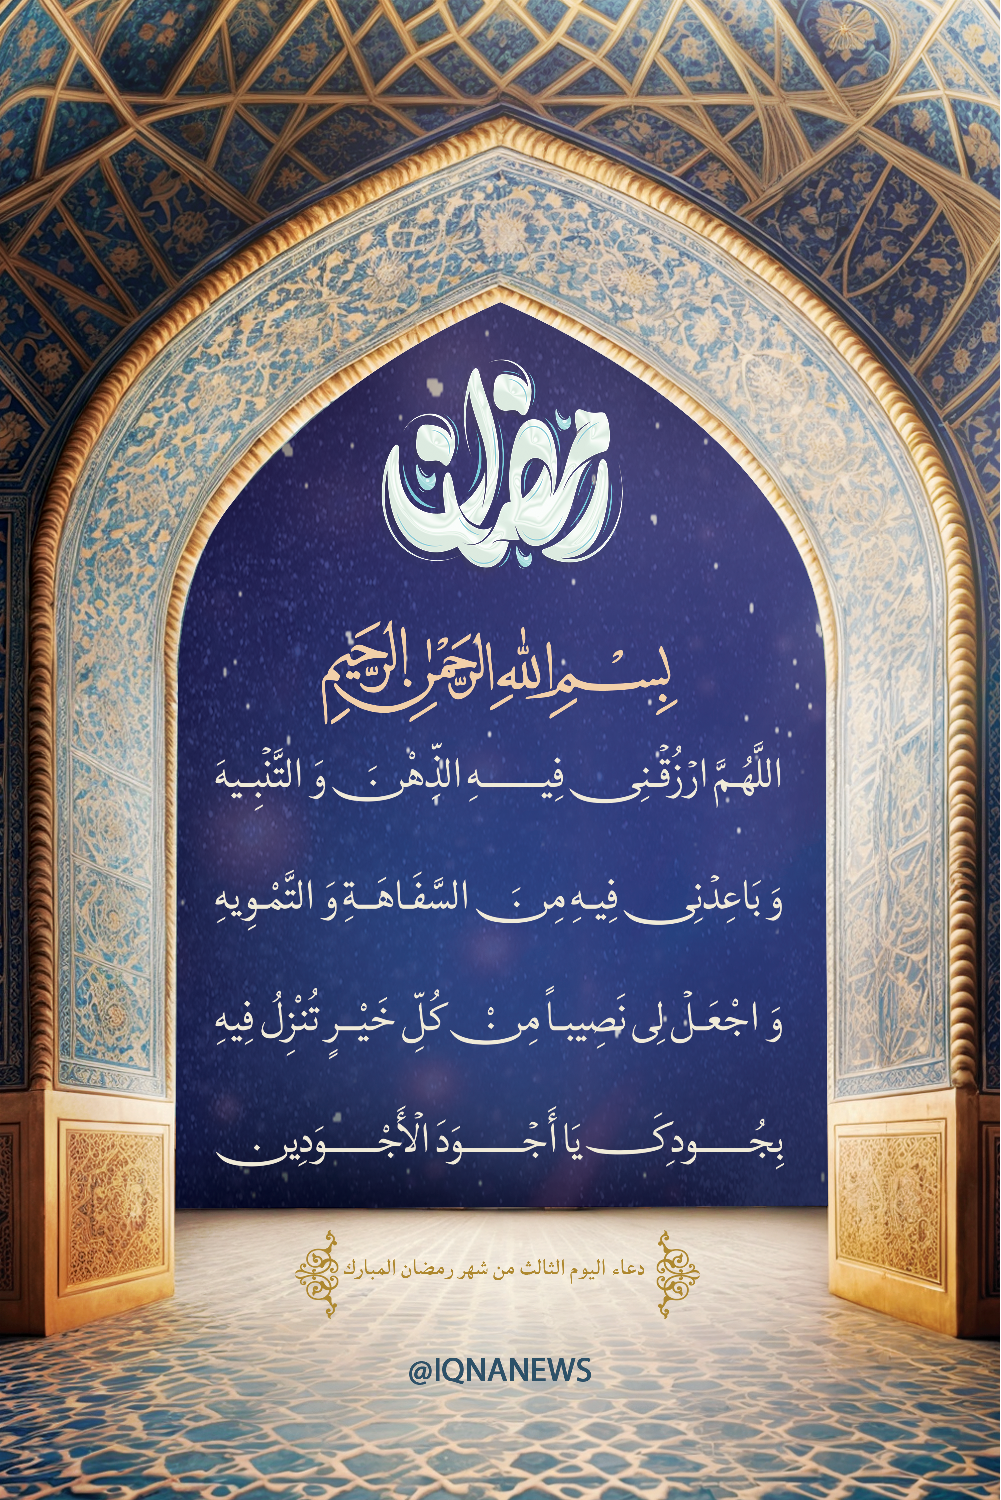 رمضان
بِسْمِ اللهِ الرَّحْمٰنِ الرَّحِيمِ
اللَّهُمَّ ارْزُقْنِی فِیهِ الذِّهْنَ وَ التَّنْبِیهَ
وَ بَاعِدْنِی فِیهِ مِنَ السَّفَاهَةِ وَ التَّمْوِیهِ
وَ اجْعَلْ لِی نَصِیباً مِنْ کُلِّ خَیْرٍ تُنْزِلُ فِیهِ
بِجُودِکَ یَا أَجْوَدَ الْأَجْوَدِین
دعاء اليوم الثالث من شهر رمضان المبارك
@IQNANEWS